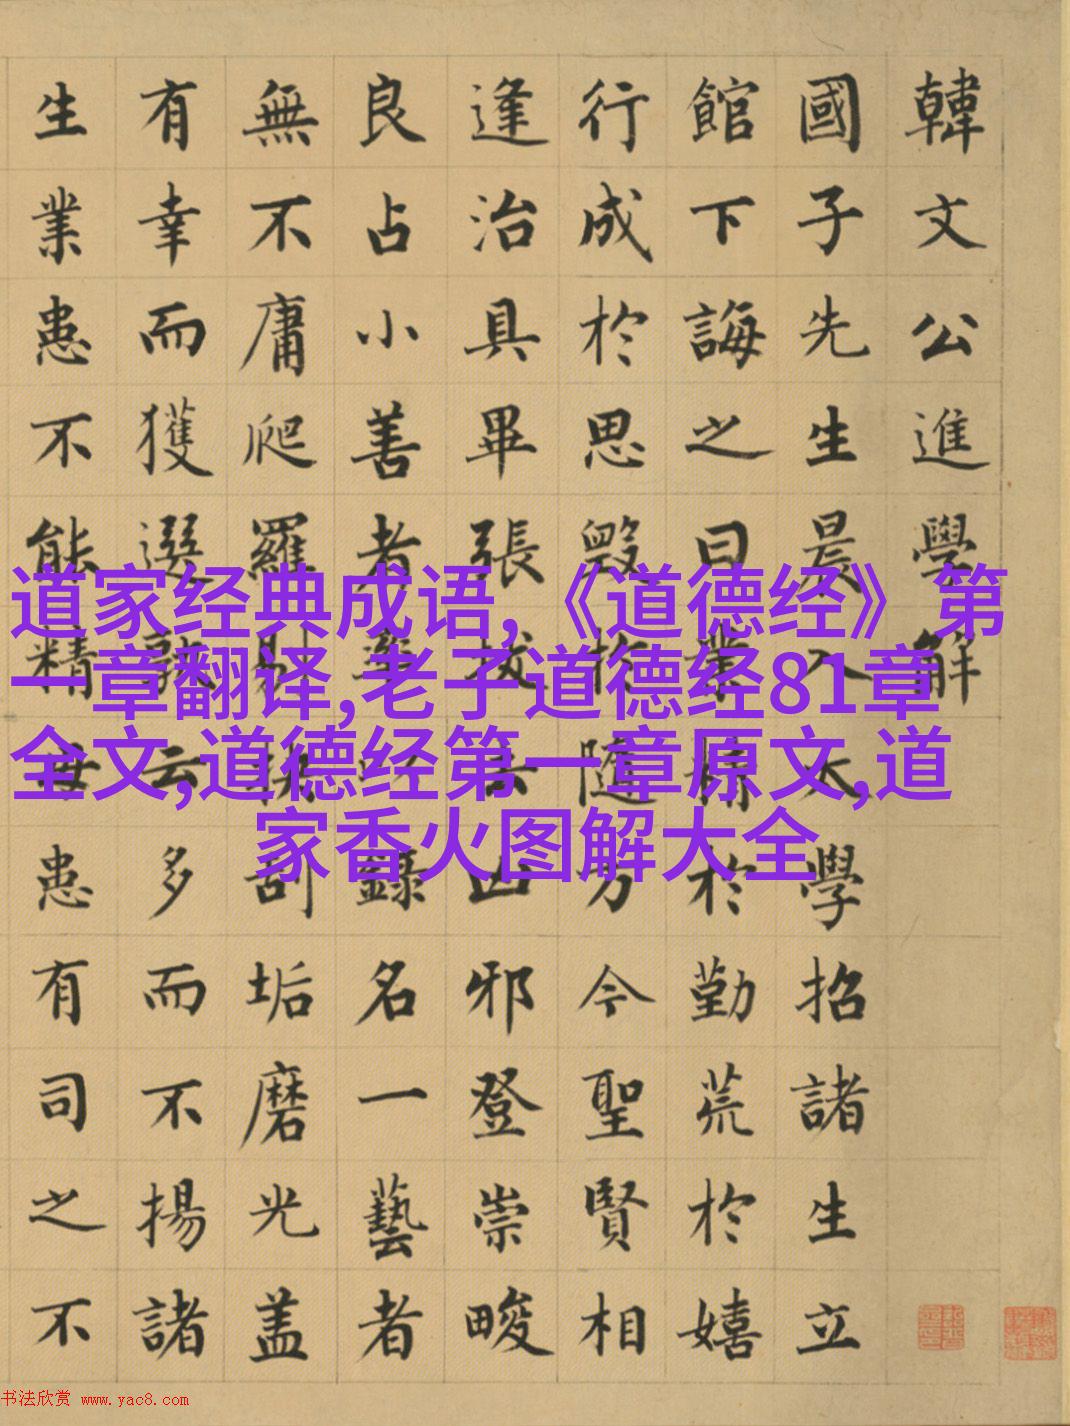 韓文公進學解
國子先生晨入太學招諸生立
館下誨之曰業精於勤荒於嬉
行成於思毀於隨方今聖賢相
逢治具畢張拔去凶邪登崇畯
良占小善者率以錄名一藝者
無不庸爬羅剔抉刮垢磨光盖
有幸而獲選孰云多而不揚諸
生業患不能精毋患有司之不
道家经典成语,《道德经》第
一章翻译,老子道德经81章
全文,道德经第一章原文,道
家香火图解大全
书法欣赏 www.yac8.com